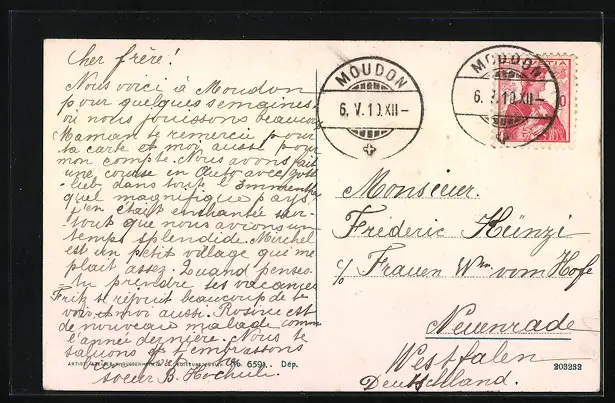 Cher frère!
Nous voici à Moudon
pour quelques semaines
où nous jouissons beaucoup
Maman te remercie pour
la carte et moi aussi pour
mon compte. Nous avons fait
une course en Auto avec
dans toute l'Emmenthal
quel magnifique pays,
j'en étais enchantée sur-
tout que nous avions un
temps splendide.
est un petit village qui me
plait assez. Quand penses-
tu prendre tes vacances
Fritz se réjouit beaucoup de te
voir et moi aussi. Rosine est
de nouveau malade comme
l'année dernière. Nous te
saluons et t'embrassons
soeur B. Hochuli.
No. 6591. Dép.
MOUDON
6. V. 10. XII-
MOUDON
6. V. 10 XII-
Monsieur.
Frederic Künzi
c/o Frauen Wwe vom Hofe
Neuenrade
Westfalen
Deutschland.
203232